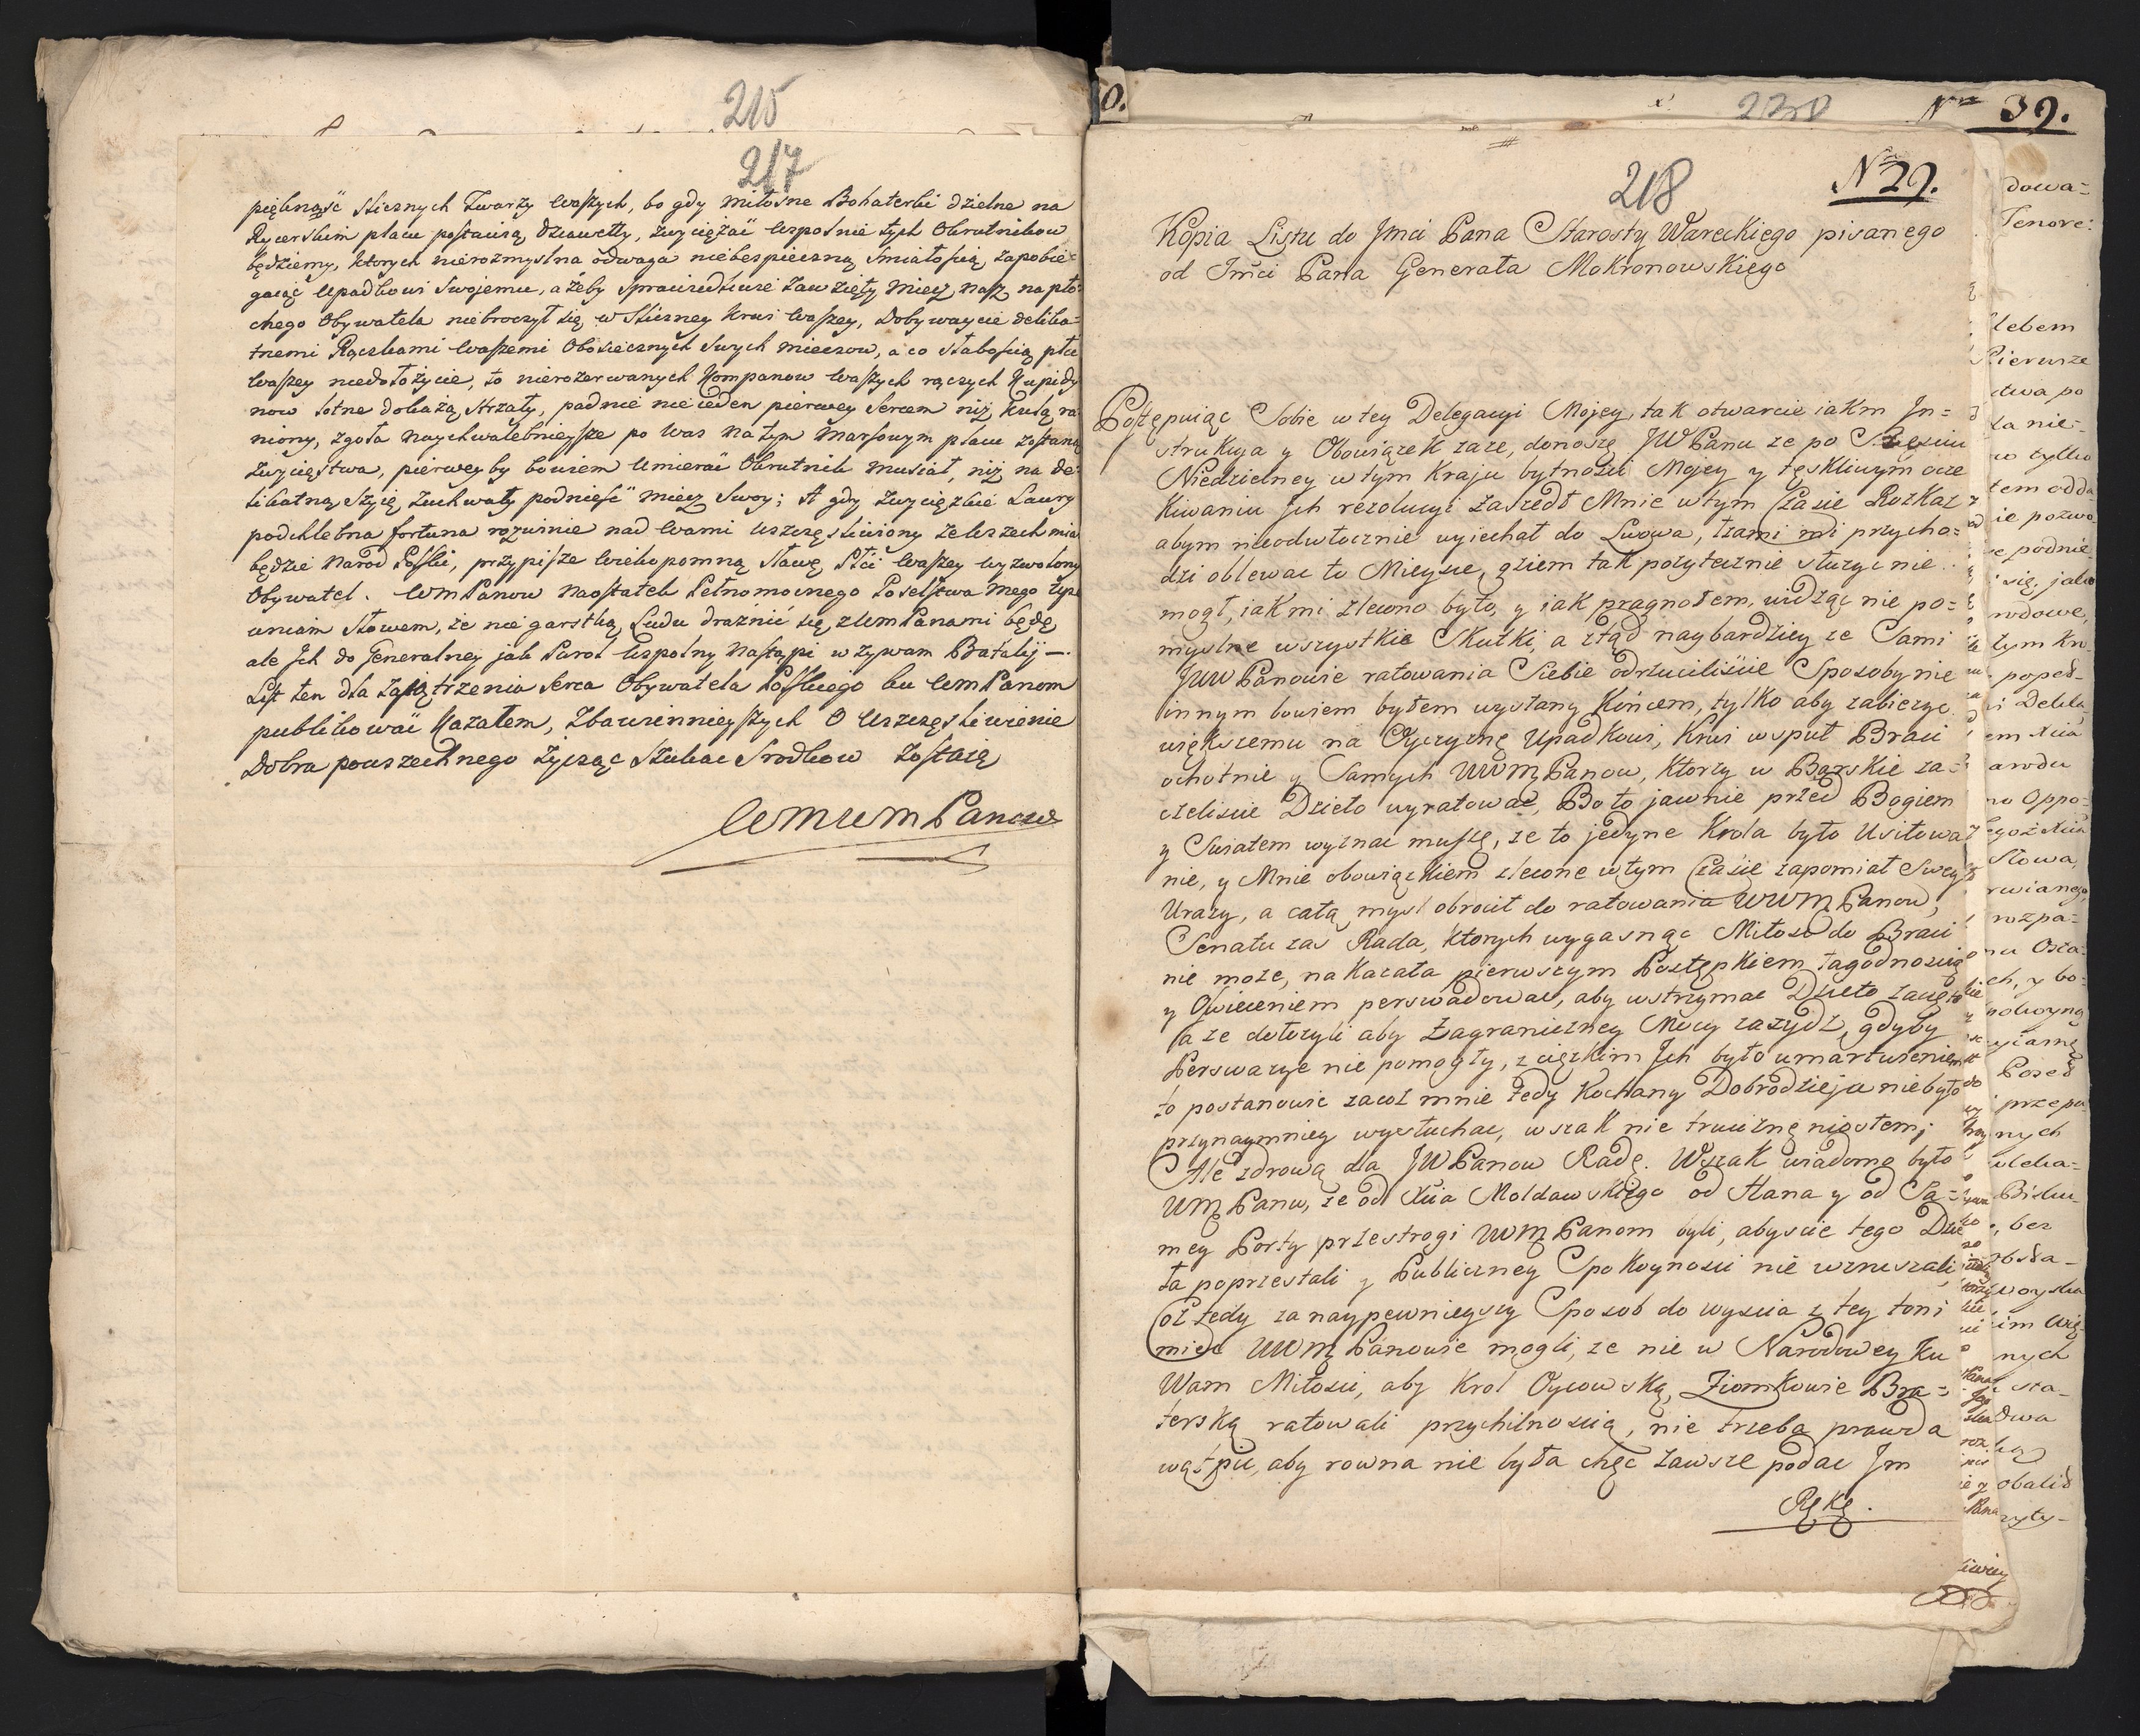 215
217
pięknąść slicznych Twarzy waszych, bo gdy miłosne Bohaterki dzielne na
Rycerskim placu postawią dzianetty, zwyciężać wspolnie tych Okrutnikow
będziemy, ktorych nierozmyslna odwaga niebespieczną smiałoscią zapobie=
gaiąc Upadkowi Swojemu, a żeby sprawiedliwie zawzięty miecz nasz na pło=
chego Obywatela niebroczył się w sliczney krwi waszey, dobywaycie delika=
tnemi Rączkami waszemi Obosiecznych swych mieczow, a co słabością płci
waszey niedołożycie, to nierozerwanych Kompanow waszych rączych Kupidy
now lotne dokażą strzały, padnie nie ieden pierwey sercem niż kulą ra=
niony, zgoła naychwalebnieysze po was na tym marsowym placu zostaną
zwycięstwa, pierwey by bowiem umierać Okrutnik musiał, niż na de=
likatną szyię zuchwały podnieść miecz swoy; A gdy zwyciezkie Laury
podchlebna fortuna rozwinie nad wami uszczęsliwiony ze wszech miar
będzie narod Polski, przypisze wiekopomną sławę Płci waszey wyzwolony
Obywatel. WmPanow naostatek Pełnomocnego Poselstwa mego
uniam słowem, że nie garstką Ludu drażnić się z WmPanami będę
ale Ich do Generalney jak Parol wspolny nastąpi wzywam Batalij —.
List ten dla zaiątrzenia serca Obywatela Polskiego ku WmPanom
publikować kazałem, zbawiennieyszych O uszczęsliwienie
Dobra powszechnego życząc szukac srodkow zostaię
WmWmPanow
0.
230
Nro 39.
218
N 29.
Kopia Listu do Jmci Pana Starosty Wareckiego pisanego
od Jmci Pana Generała Mokronowskiego
Postępuiąc Sobie w tey Delegacyi Mojey, tak otwarcie iak m In=
strukcya y Obowiązek każe, donoszę JWPanu ze po Szesciu
Niedzielney w tym Kraju bytnosci Mojey y tęskliwym ocze
kiwaniu Ich rezolucyi zaszedł Mnie w tym Czasie Rozkaz
abym nieodwłocznie wyiechał do Lwowa, łzami mi przycho=
dzi oblewac to Mieysce, gdziem tak pozytecznie słuzyc nie
mogł, iak mi zlecono było, y iak pragnołem, widząc nie po=
myslne wszystkie Skutki, a ztąd naybardziey ze Sami
JWWPanowie ratowania Siebie odrzuciliscie Sposoby nie
innym bowiem byłem wysłany Koncem, tylko aby zabiezyc
większemu na Oyczyznę Upadkowi, Krwi wsput Braci
ochotnie y Samych WWMPanow, ktorzy w Barskie za=
czeliscie Dzieło wyratowac, Bo to jawnie przed Bogiem
y Swiatem wyznac muszę, ze to jedyne Krola było Usiłowa
nie, y Mnie obowiązkiem zlecone w tym Czasie zapomiał Swey
Urazy, a całą mysl obrocił do ratowania WWMPanow,
Senatu zas Rada, ktorych wygasnąc Miłosc do Braci
nie moze, nakazała pierwszym Postępkiem łagodnoscią
y Oswieceniem perswadowac, aby wstrzymac Dzieło zaczęte
a ze dołozyli aby Zagraniczney Mocy zazydz, gdyby
Perswazye nie pomogły, z cięzkim Ich było umartwieniem
to postanowic zacoz mnie tedy Kochany Dobrodzieju niebyło
przynaymniey wysłuchac, wszak nie truciznę niosłem;
Ale zdrową dla JWPanow Radę. Wszak wiadomo było
WMPanu, ze od Xcia Mołdawskiego od Hana y od Sa=
mey Porty przestrogi WWMPanom byli, abyscie tego Dzie
ła poprzestali y Publiczney Spokoynosci nie wzruszali
Coz tedy za naypewnieyszy Sposob do wyscia z tey toni
miec WWMPanowie mogli, ze nie w Narodowey ku
Wam Miłosci, aby Krol Oycowską, Ziomkowie Bra=
terską ratowali przychilnoscią, nie trzeba prawda
wątpic, aby rowna nie była chęc zawsze podac Im
Rękę.
dowa=
Tenore:
Chlebem
Pierwsze
ctwa po
ła nie-
w tylko
tem odda
ie pozwo
podnie
się, jako
rodowe,
tym Kro
popeł-
i Delika
em Xcia
arodu
no Oppo=
Słowa,
rwianego,
rozpa=
ch, y bo=
Poseł
przepu
nych
wleka=
Bisku-
bez
woyska
im Wię-
nych
sta-
dwa
obalić
zyty-